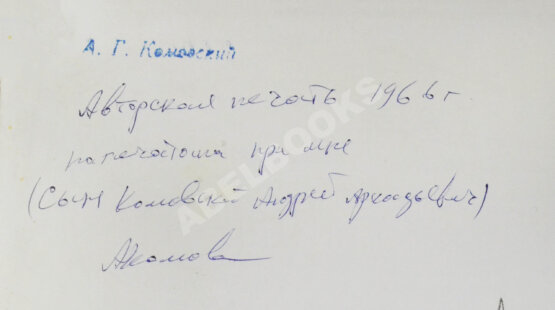 А. Г. Комовский
Авторская печать 1966 г
напечатана при мне
(Сын Комовский Андрей Аркадьевич)
ABELBOOKS